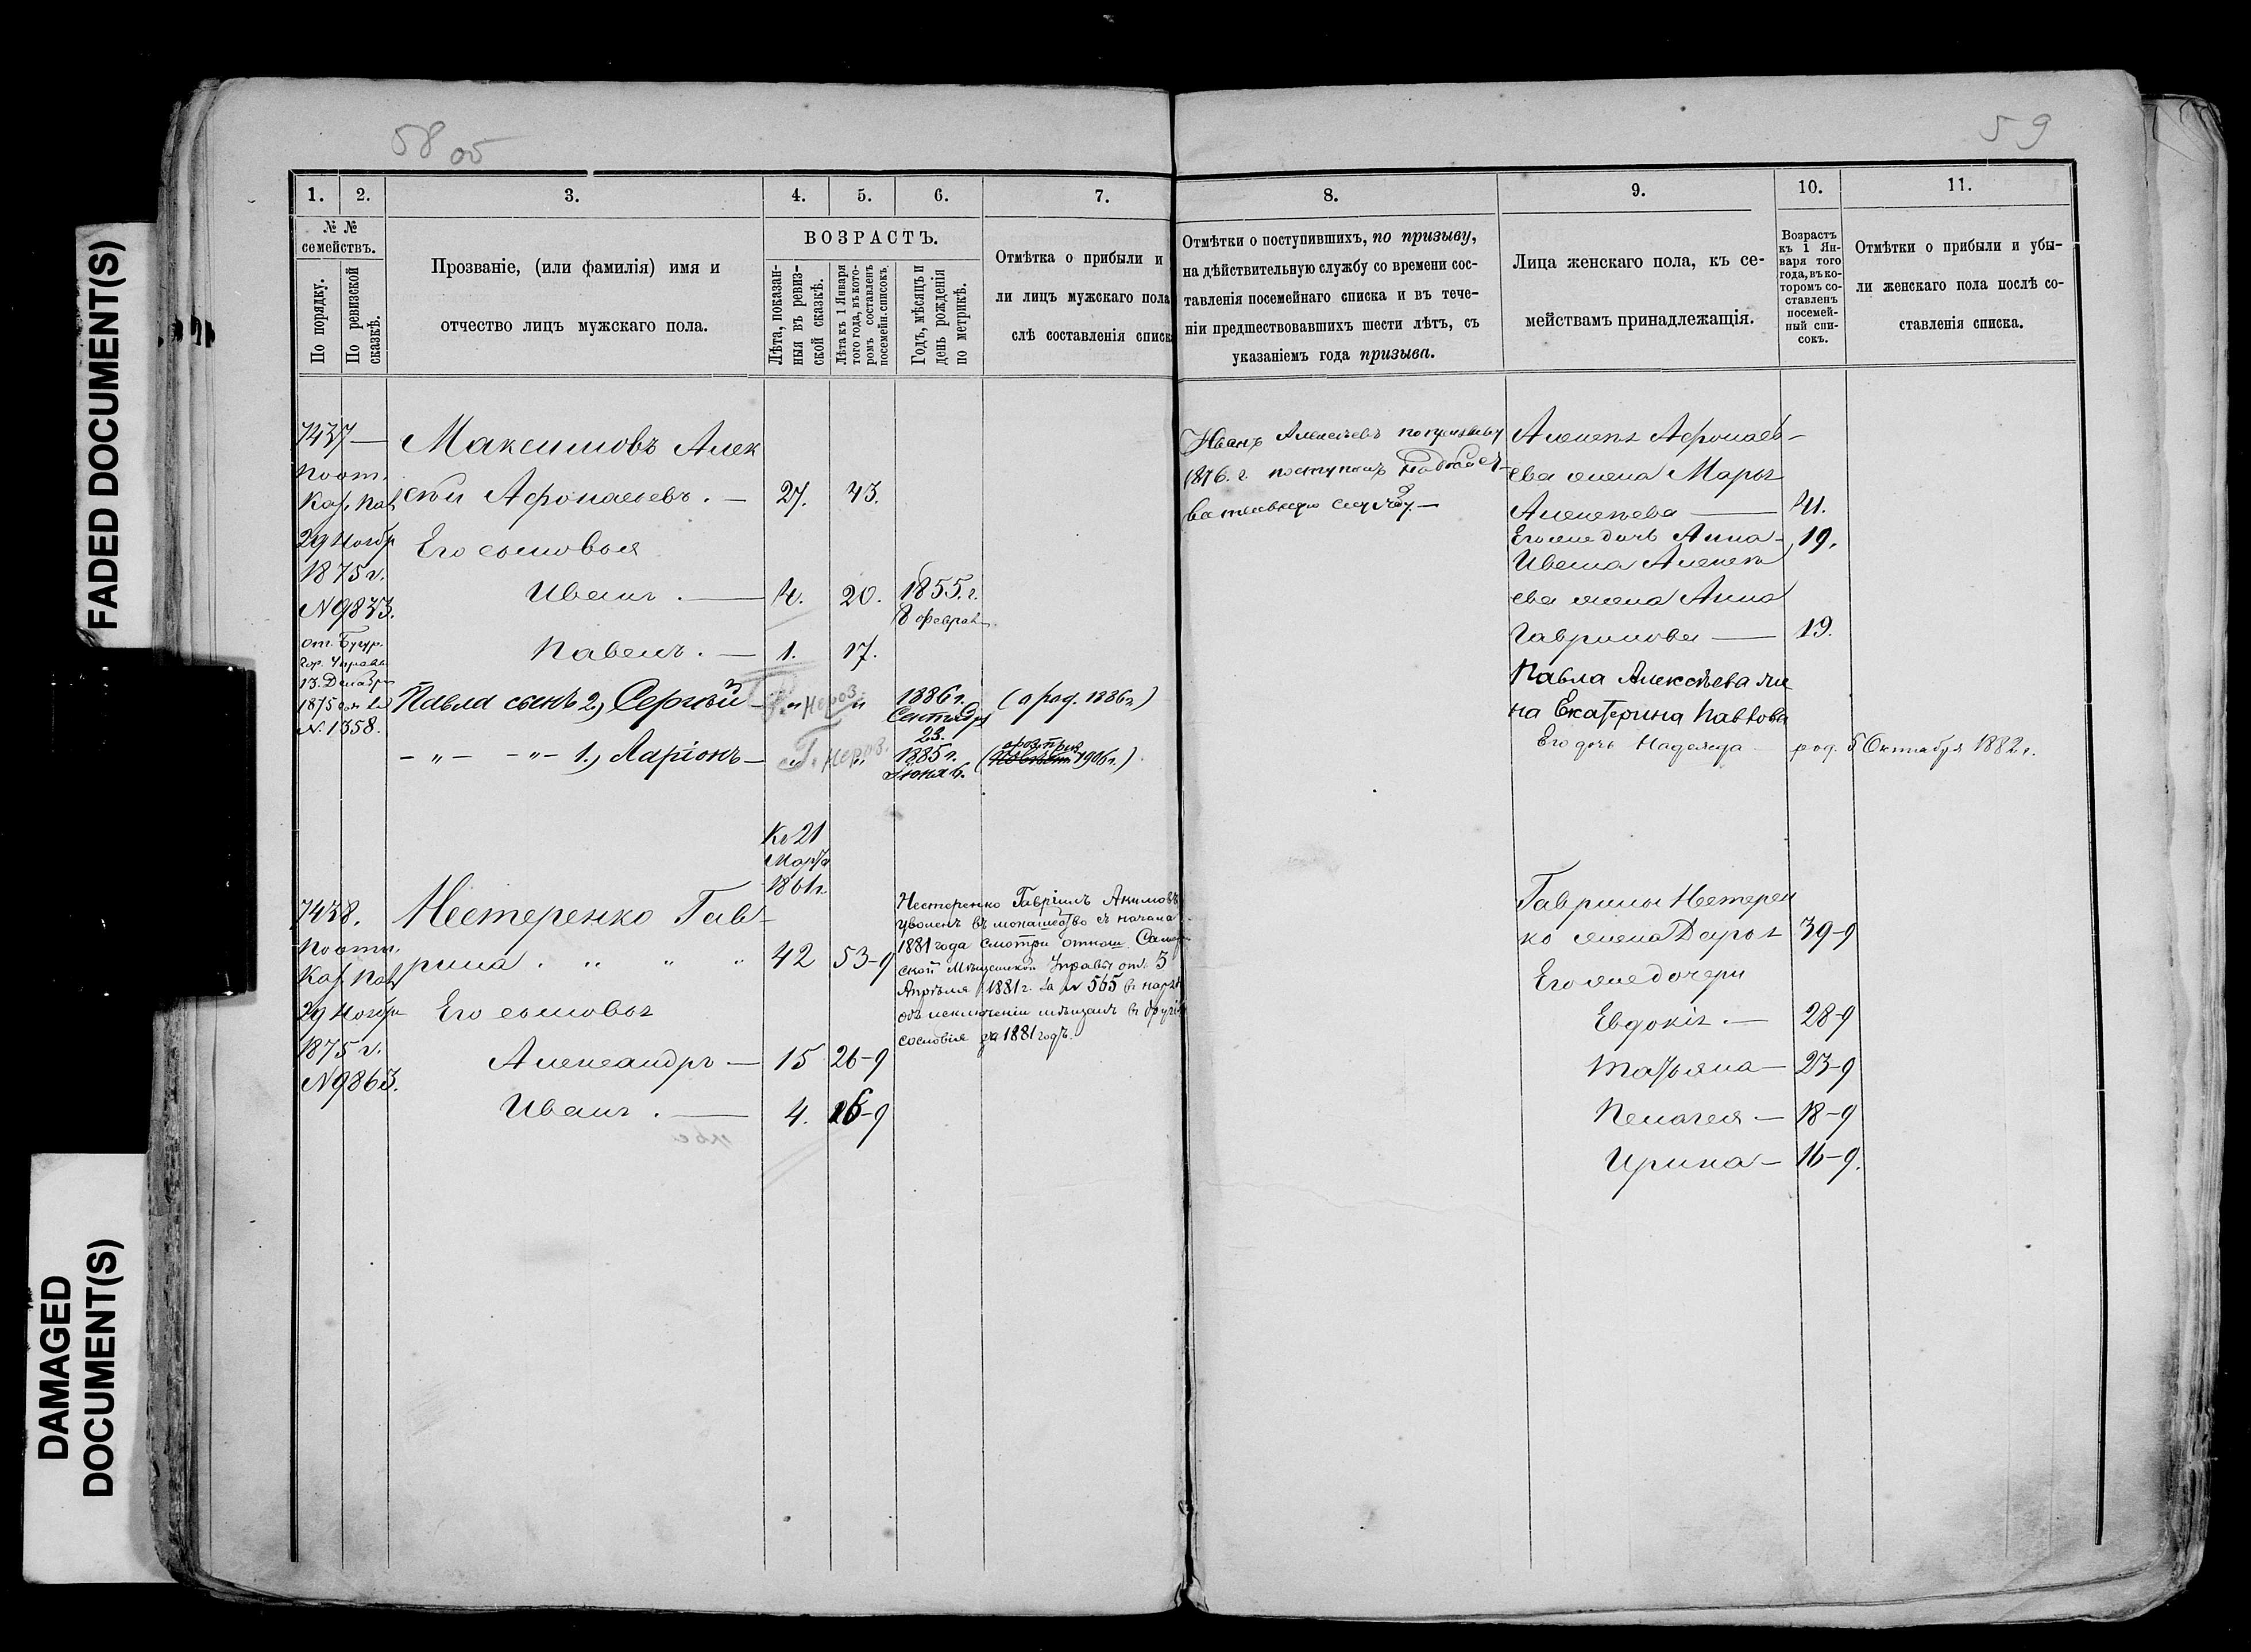 FADED DOCUMENT(S)
DAMAGED
DOCUMENT(S)
58 об
59
1.
2.
3.
4.
5.
6.
7.
8.
9.
10.
11.
№ №
семействъ.
По порядку.
По ревизской
сказкѣ.
Прозваніе, (или фамилія) имя и
отчество лицъ мужскаго пола.
ВОЗРАСТЪ.
Лѣта, показан-
ныя въ ревиз-
ской сказкѣ.
Лѣта къ 1 Января
того года, въ кото-
ромъ составленъ
посемейн. списокъ.
Годъ, мѣсяцъ и
день рожденія
по метрикѣ.
Отмѣтка о прибыли и
ли лицъ мужскаго пола
слѣ составленія списк
Отмѣтки о поступившихъ, по призыву,
на дѣйствительную службу со времени сос-
тавленія посемейнаго списка и въ тече-
ніи предшествовавшихъ шести лѣтъ, съ
указаніемъ года призыва.
Лица женскаго пола, къ се-
мействамъ принадлежащія.
Возрастъ
къ 1 Ян-
варя того
года, въ ко-
торомъ со-
ставленъ
посемей-
ный спи-
сокъ.
Отмѣтки о прибыли и убы-
ли женскаго пола послѣ со-
ставленія списка.
7437—
по от.
Каз. Пал
29 Ноябр
1875 г.
№ 9833.
от. Бугур.
Гор. Управы
13. Декабря
1875 за
№ 1358.
Максимовъ Алек
сѣй Афонасьевъ. — 27. 43.
Его сыновья
Иванъ. — 4. 20. 1855. г.
8 феврал
Павелъ. — 1. 17.
Павла сынъ 2) Сергѣй — " " 1886 г.
Сентября
23.
(а род. 1886 г.)
— " — — " — 1.) Ларіонъ — " " 1885 г.
Іюня 6.
( 1906 г.)
Иванъ Алексѣевъ по призыву
1876. г. поступилъ на дѣйст-
вительную службу. —
Алексѣя Афонасьев—
ева жена Марья
Алексѣева — 41.
Его же дочь Анна — 19.
Ивана Алексѣ
ева жена Анна
Гаврилова — 19.
Павла Алексѣева же
на Екатерина Павлова
Его дочь Надежда — род. 5 Октября 1882 г.
Къ 21
Марта
1861 г.
7438.
По отн.
Каз. Пал
29 Ноября
1875 г.
№ 9863.
Нестеренко Гав-
рила . " " " 42 53-9
Его сыновья
Александръ — 15 26-9
Иванъ. — 4. 16-9
Нестеренко Гавріилъ Акимовъ
уволенъ въ монашество съ начала
1881 года смотри отнош. Самар
ской Мѣщанской Управы от. 5
Апрѣля 1881 г. за № 565 въ наря
объ исключеніи мѣщанъ въ другія
сословія за 1881 годъ.
Гаврилы Нестерен
ко жена Дарья 39-9
Его же дочери
Евдокія. — 28-9
Татьяна — 23-9
Пелагея — 18-9
Ирина — 16-9.